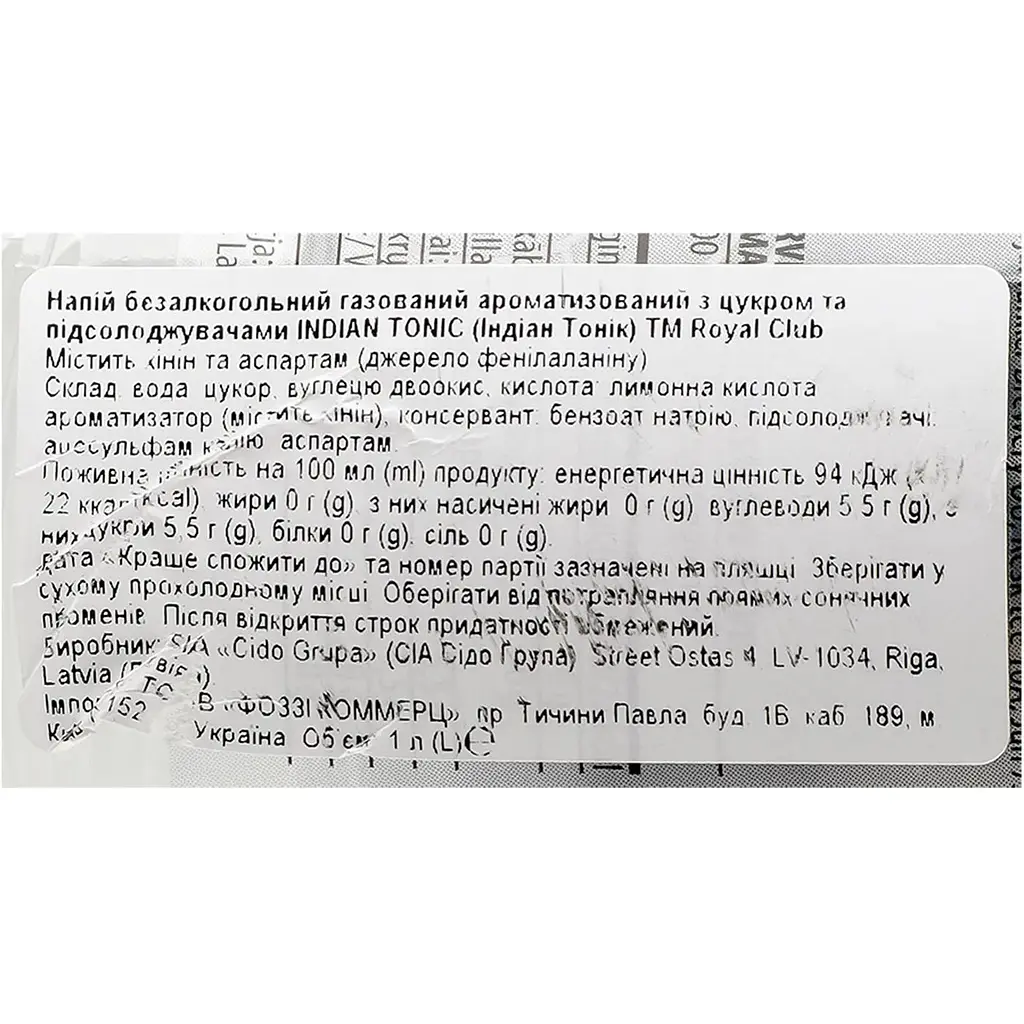 Напій безалкогольний газований ароматизований з цукром та
підсолоджувачами INDIAN TONIC (Індіан Тонік) ТМ Royal Club
Містить хінін та аспартам (джерело фенілаланіну)
Склад вода цукор, вуглецю двоокис, кислота: лимонна кислота
ароматизатор (містить хінін), консервант: бензоат натрію, підсолоджувачі:
ацесульфам калію аспартам.
Поживна цінність на 100 мл (ml) продукту: енергетична цінність 94 кДж
22 ккал (kcal), жири 0 г (g), з них насичені жири 0 г (g) вуглеводи 5,5 г (g), з
них цукри 5,5 г (g), білки 0 г (g), сіль 0 г (g).
Дата «Краще спожити до» та номер партії зазначені на пляшці. Зберігати у
сухому прохолодному місці. Оберігати від потрапляння прямих сонячних
променів. Після відкриття строк придатності обмежений.
Виробник: SIA «Cido Grupa» (СІА Сідо Група) Street Ostas 4, LV-1034, Riga,
Latvia
ТОВ «ФОЗЗІ КОММЕРЦ», пр. Тичини Павла буд. 1В каб. 189, м.
152 Україна Об'єм 1 л (L) ℮